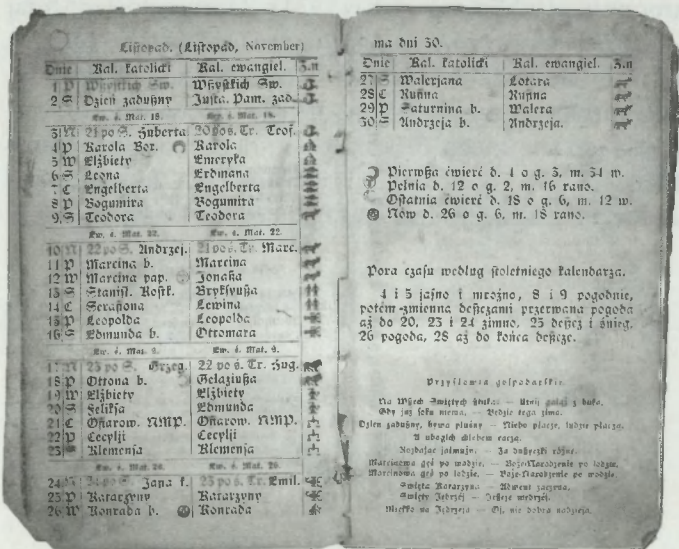 Listopad. (Listopad, November)
Dnie Kal. katolicki Kal. ewangiel. Z.n
1 P Wszystkich Św. Wszystkich Św.
2 S Dzień zaduszny Justa. Pam. zad.
Ew. ś. Mat. 18.
3 N 21 po S. Huberta 20 po s. Tr. Teof.
4 P Karola Bor. Karola
5 W Elżbiety Emeryka
6 S Leona Erdmana
7 C Engelberta Engelberta
8 P Bogumira Bogumira
9 S Teodora Teodora
Ew. ś. Mat. 22. Ew. ś. Mat. 22.
10 N 22 po S. Andrzej. 21 po s. Tr. Marc.
11 P Marcina b. Marcina
12 W Marcina pap. Jonasza
13 S Stanisł. Kostk. Brykcyusza
14 C Serafiona Lewina
15 P Leopolda Leopolda
16 S Edmunda b. Ottomara
Ew. ś. Mat. 9. Ew. ś. Mat. 9.
17 N 23 po S. Grzeg. 22 po s. Tr. Hug.
18 P Ottona b. Gelaziusza
19 W Elżbiety Elżbiety
20 S Feliksa Edmunda
21 C Ofiarow. NMP. Ofiarow. NMP.
22 P Cecylji Cecylji
23 S Klemensa Klemensa
24 N 24 po S. Jana k. 23 po s. Tr. Emil.
25 P Katarzyny Katarzyny
26 W Konrada b. Konrada
ma dni 30.
Dnie Kal. katolicki Kal. ewangiel. Z.n
27 S Walerjana Lotara
28 C Rufina Rufina
29 P Saturnina b. Waltera
30 S Andrzeja b. Andrzeja.
Pierwsza ćwierć d. 4 o g. 3, m. 34 w.
Pełnia d. 12 o g. 2, m. 16 rano.
Ostatnia ćwierć d. 18 o g. 6, m. 12 w.
Nów d. 26 o g. 6, m. 18 rano.
Pora czasu według stoletniego kalendarza.
4 i 5 jasno i mroźno, 8 i 9 pogodnie,
potem zmienna deszczami przerwana pogoda
aż do 20, 23 i 24 zimno, 25 deszcz i śnieg,
26 pogoda, 28 aż do końca deszcze.
Przysłowia gospodarskie.
Na Wszech Świętych sztuka: — Utnij gałąź z buka,
Gdy już soku niema. — Będzie tęga zima.
Dzień zaduszny, bywa pluśny — Niebo płacze, ludzie płaczą.
A ubogich chlebem raczą.
Rozdając jałmużn. — Za duszyczki różne.
Marcinowa gęś po wodzie. — Boże-Narodzenie po lodzie.
Marcinowa gęś po lodzie. — Boże-Narodzenie po wodzie.
Święta Katarzyna — Adwent zaczyna.
Święty Jędrzej — Jeszcze mędrzej.
Miękko na Jędrzeja — Oj, nie dobra nadzieja.